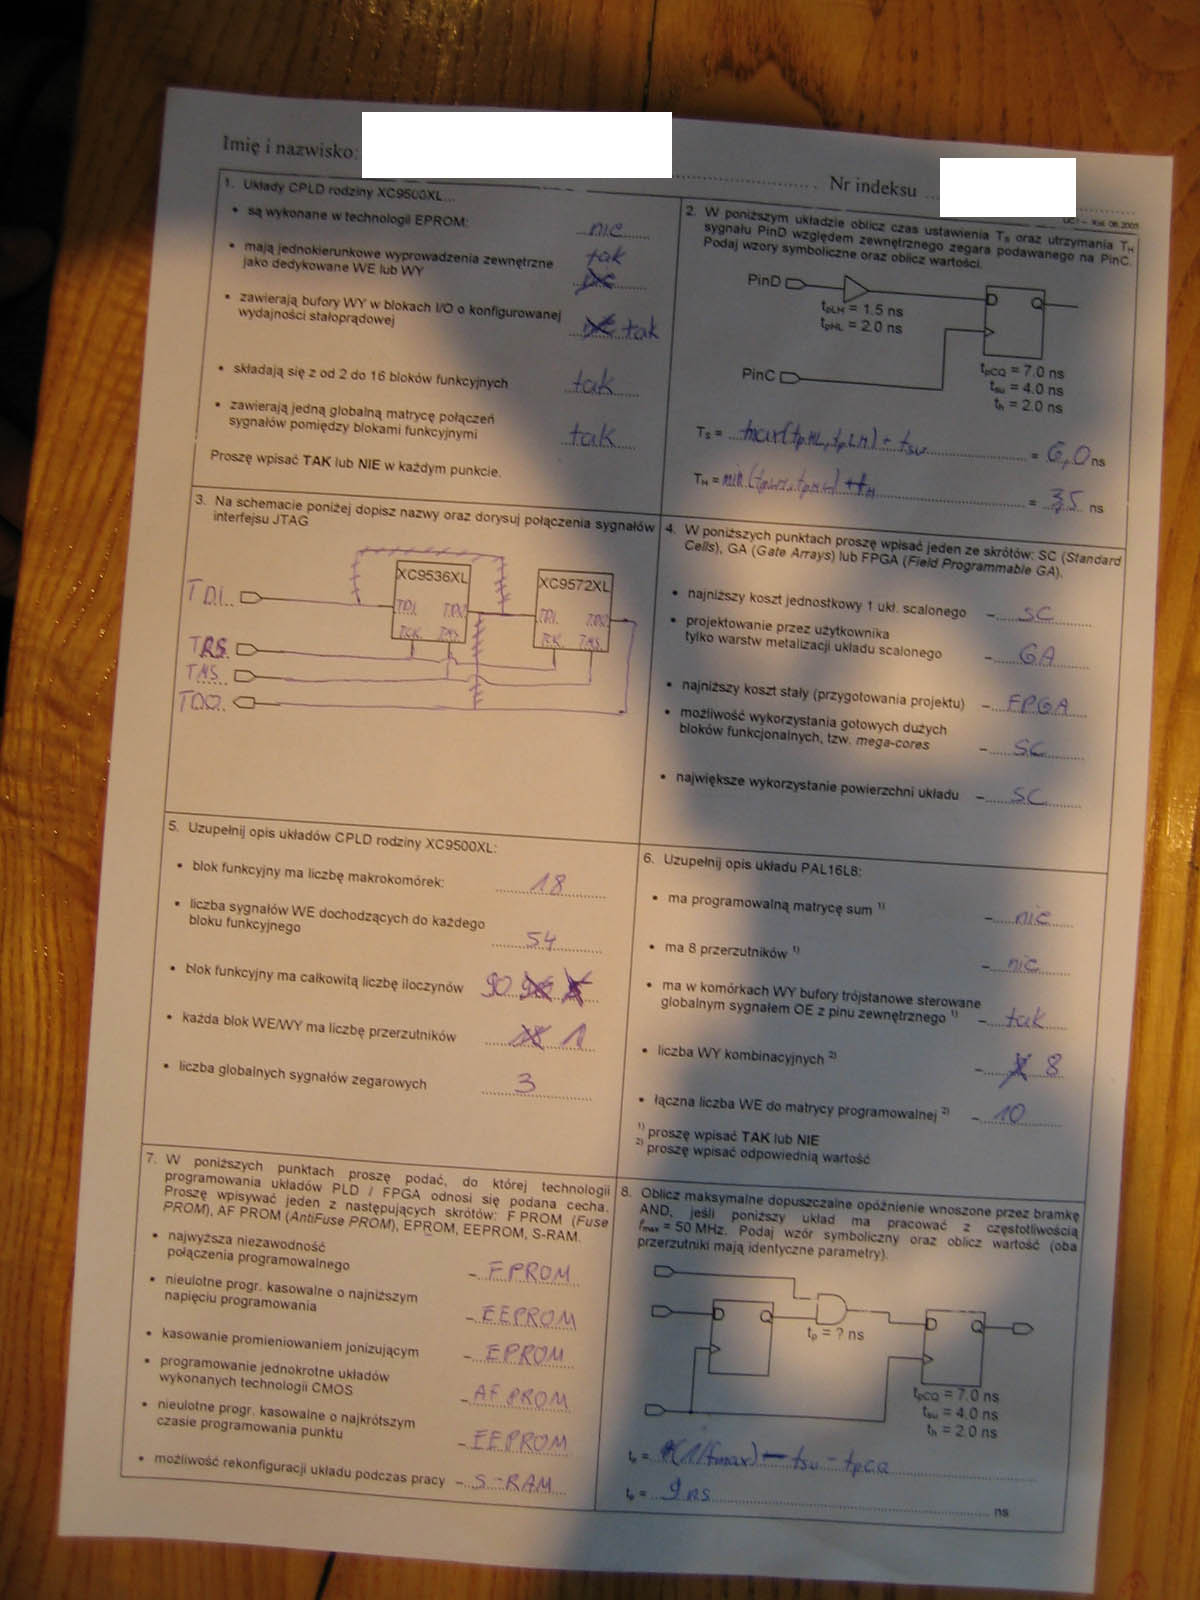 Imię i nazwisko:
Nr indeksu
1. Układy CPLD rodziny XC9500XL...
• są wykonane w technologii EPROM: nie
• mają jednokierunkowe wyprowadzenia zewnętrzne tak
jako dedykowane WE lub WY
• zawierają bufory WY w blokach I/O o konfigurowanej
wydajności stałoprądowej tak
• składają się z od 2 do 16 bloków funkcyjnych tak
• zawierają jedną globalną matrycę połączeń
sygnałów pomiędzy blokami funkcyjnymi tak
Proszę wpisać TAK lub NIE w każdym punkcie.
2. W poniższym układzie oblicz czas ustawienia Ts oraz utrzymania TH
sygnału PinD względem zewnętrznego zegara podawanego na PinC.
Podaj wzory symboliczne oraz oblicz wartości.
PinD
D Q
tpLH = 1.5 ns
tpHL = 2.0 ns
PinC
tpCQ = 7.0 ns
tsu = 4.0 ns
th = 2.0 ns
Ts = max(tpHL, tpLH) + tsu = 6,0 ns
TH = min(tpLH, tpHL) + tH = 3,5 ns
3. Na schemacie poniżej dopisz nazwy oraz dorysuj połączenia sygnałów
interfejsu JTAG
XC9536XL XC9572XL
TDI
TDI TDO TDI TDO
TCK TMS TCK TMS
TMS
TDO
4. W poniższych punktach proszę wpisać jeden ze skrótów: SC (Standard
Cells), GA (Gate Arrays) lub FPGA (Field Programmable GA).
• najniższy koszt jednostkowy 1 ukł. scalonego – SC
• projektowanie przez użytkownika
tylko warstw metalizacji układu scalonego – GA
• najniższy koszt stały (przygotowania projektu) – FPGA
• możliwość wykorzystania gotowych dużych
bloków funkcjonalnych, tzw. mega-cores – SC
• największe wykorzystanie powierzchni układu – SC
5. Uzupełnij opis układów CPLD rodziny XC9500XL:
• blok funkcyjny ma liczbę makrokomórek: 18
• liczba sygnałów WE dochodzących do każdego
bloku funkcyjnego 54
• blok funkcyjny ma całkowitą liczbę iloczynów 90
• każda blok WE/WY ma liczbę przerzutników 18 1
• liczba globalnych sygnałów zegarowych 3
6. Uzupełnij opis układu PAL16L8:
• ma programowalną matrycę sum 1) – nie
• ma 8 przerzutników 1) – nie
• ma w komórkach WY bufory trójstanowe sterowane
globalnym sygnałem OE z pinu zewnętrznego 1) – tak
• liczba WY kombinacyjnych 2) – 8
• łączna liczba WE do matrycy programowalnej 2) – 10
1) proszę wpisać TAK lub NIE
2) proszę wpisać odpowiednią wartość
7. W poniższych punktach proszę podać, do której technologii
programowania układów PLD / FPGA odnosi się podana cecha.
Proszę wpisywać jeden z następujących skrótów: F PROM (Fuse
PROM), AF PROM (AntiFuse PROM), EPROM, EEPROM, S-RAM.
• najwyższa niezawodność
połączenia programowalnego – F PROM
• nieulotne progr. kasowalne o najniższym
napięciu programowania – EEPROM
• kasowanie promieniowaniem jonizującym – EPROM
• programowanie jednokrotne układów
wykonanych technologii CMOS – AF PROM
• nieulotne progr. kasowalne o najkrótszym
czasie programowania punktu – EEPROM
• możliwość rekonfiguracji układu podczas pracy – S-RAM
8. Oblicz maksymalne dopuszczalne opóźnienie wnoszone przez bramkę
AND, jeśli poniższy układ ma pracować z częstotliwością
fmax = 50 MHz. Podaj wzór symboliczny oraz oblicz wartość (oba
przerzutniki mają identyczne parametry).
D Q D Q
tp = ? ns
tpCQ = 7.0 ns
tsu = 4.0 ns
th = 2.0 ns
tp = (1/fmax) – tsu – tpCQ
tp = 9 ns ns